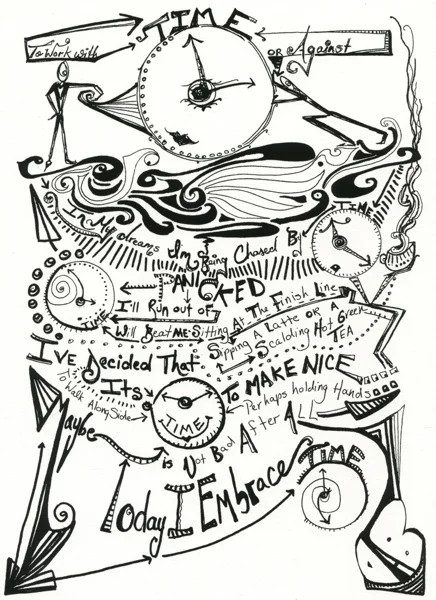 TIME
To Work with
OR Against
In My dreams I'm Being Chased By
TIME
PANICKED
I'll Run out of
TIME
Will Beat ME - Sitting At The Finish Line
Sipping A Latte OR A
Scalding Hot Greek
TEA
I'VE Decided That
It's
To MAKE NICE
To Walk Along Side
TIME
Perhaps holding Hands
Maybe
is Not Bad After ALL
Today I Embrace
TIME